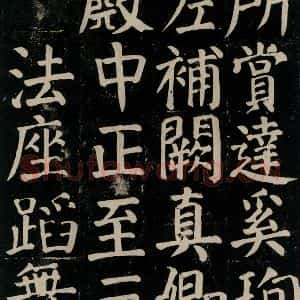 所賞達奚珣
左補闕真卿
殿中正至
法座蹈無